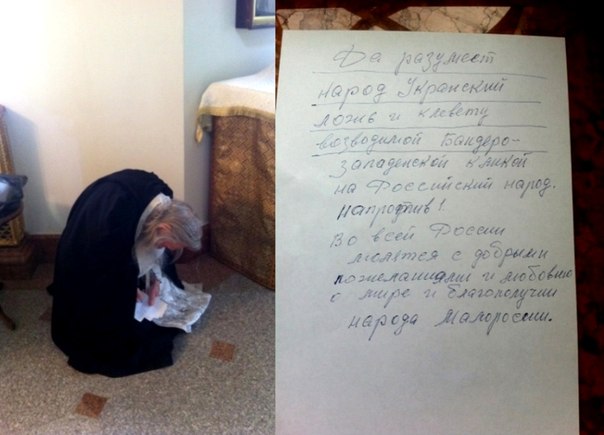 Да разумеет
народ Укранский
ложь и клевету
возводимой Бандеро-
западенской кликой
на Российский народ.
напротив!
Во всей России
молятся с добрыми
пожеланиями и любовию
о мире и благополучии
народа Малороссии.